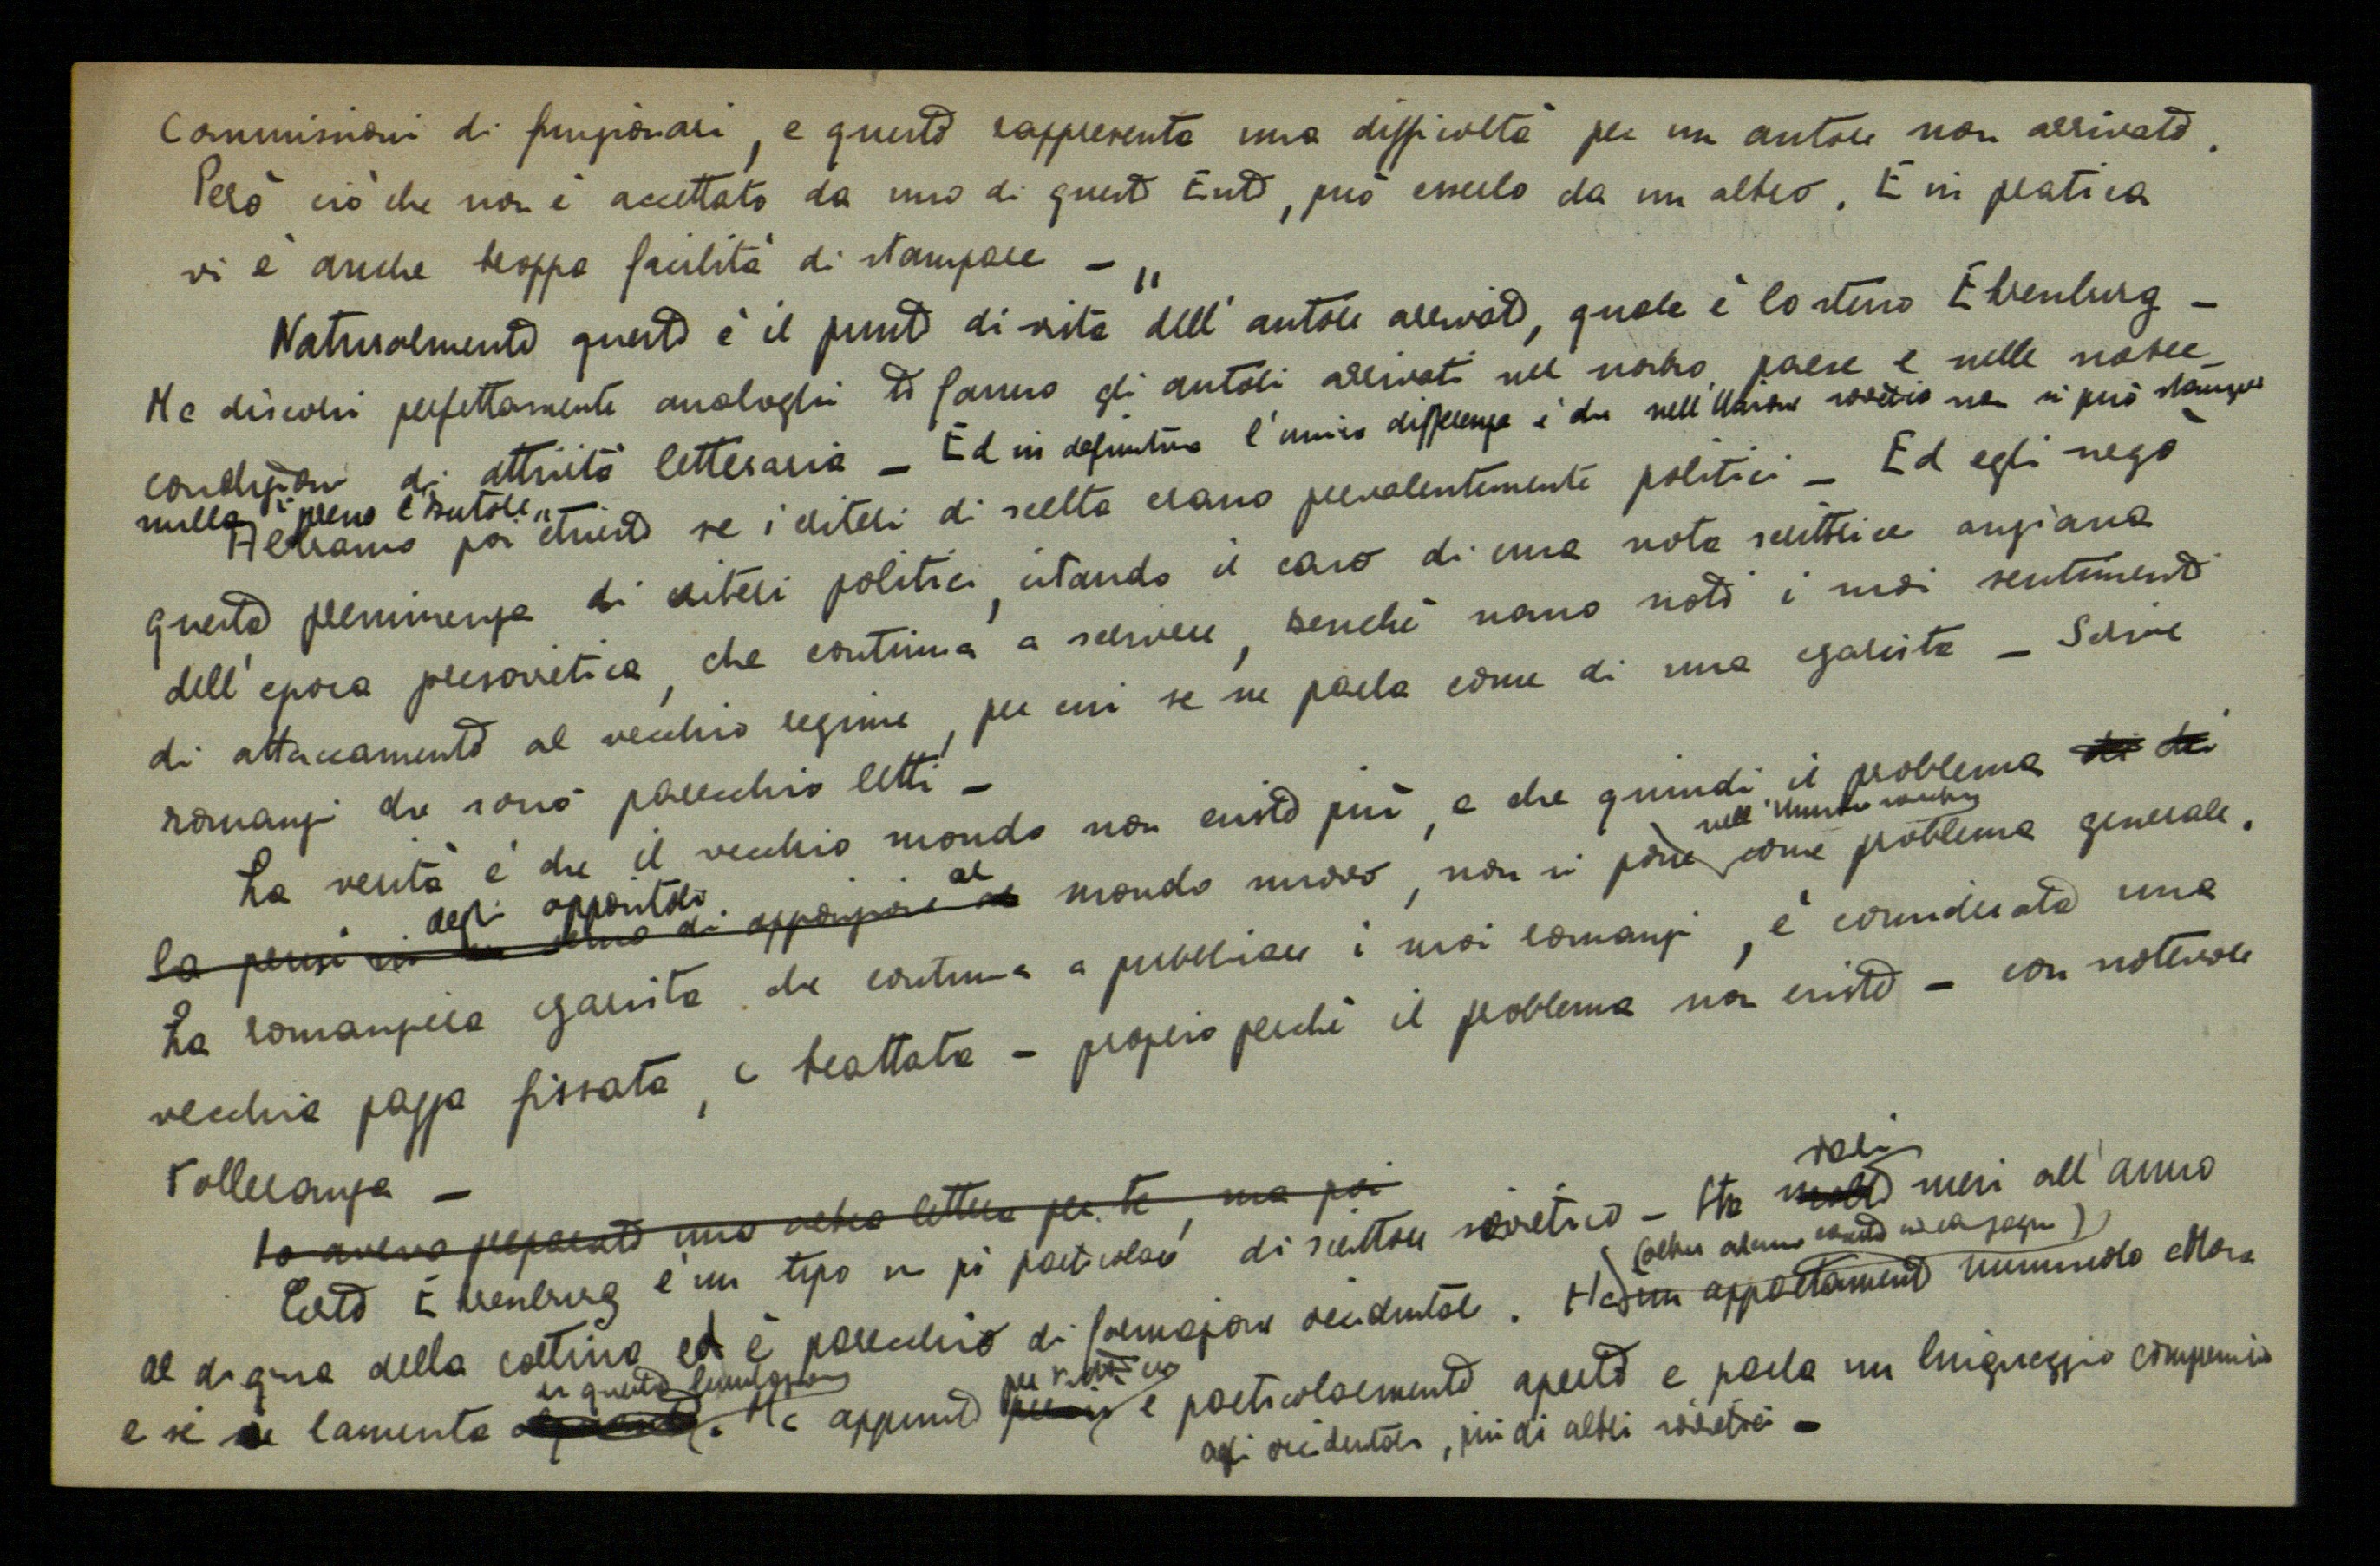 Commissioni di funzionari, e questo rappresenta una difficoltà per un autore non arrivato.
Però ciò che non è accettato da uno di questi Enti, può esserlo da un altro. E in pratica
vi è anche troppa facilità di stampare – "
Naturalmente questo è il punto di vista dell'autore arrivato, quale è lo stesso Ehrenburg –
Ma discorsi perfettamente analoghi ti fanno gli autori arrivati nel nostro paese e nelle nostre
condizioni di attività letteraria – Ed in definitiva l'unica differenza è che nell'Unione sovietica non si può stampare
nulla a spese l'autore"
Abbiamo poi chiesto se i criteri di scelta erano prevalentemente politici – Ed egli negò
questa preminenza di criteri politici, citando il caso di una nota scrittrice anziana
dell'epoca presovietica, che continua a scrivere, benché siano noti i suoi sentimenti
di attaccamento al vecchio regime, per cui se ne parla come di una zarista – Scrive
romanzi che sono parecchio letti –
La verità è che il vecchio mondo non esiste più, e che quindi il problema dei dei
degli oppositori al nell'Unione sovietica
la presi in un senso di opposizione al mondo nuovo, non si pone come problema generale.
La romanziera zarista che continua a pubblicare i suoi romanzi, è considerata una
vecchia pazza fissata, e trattata – proprio perché il problema non esiste – con notevole
tolleranza –
Io avevo preparato una altra lettera per te, ma poi
vari
Certo Ehrenburg è un tipo un pò particolare di scrittore sovietico – Sta molti mesi all'anno
(oltre ad una casetta in campagna)
al di qua della cortina ed è parecchio di formazione occidentale. Ha un appartamento minuscolo a Mosca
di questa per tutto ciò
e se ne lamenta. Ma appunto perciò è particolarmente aperto e parla un linguaggio comprensivo
agli occidentali, più di altri sovietici –